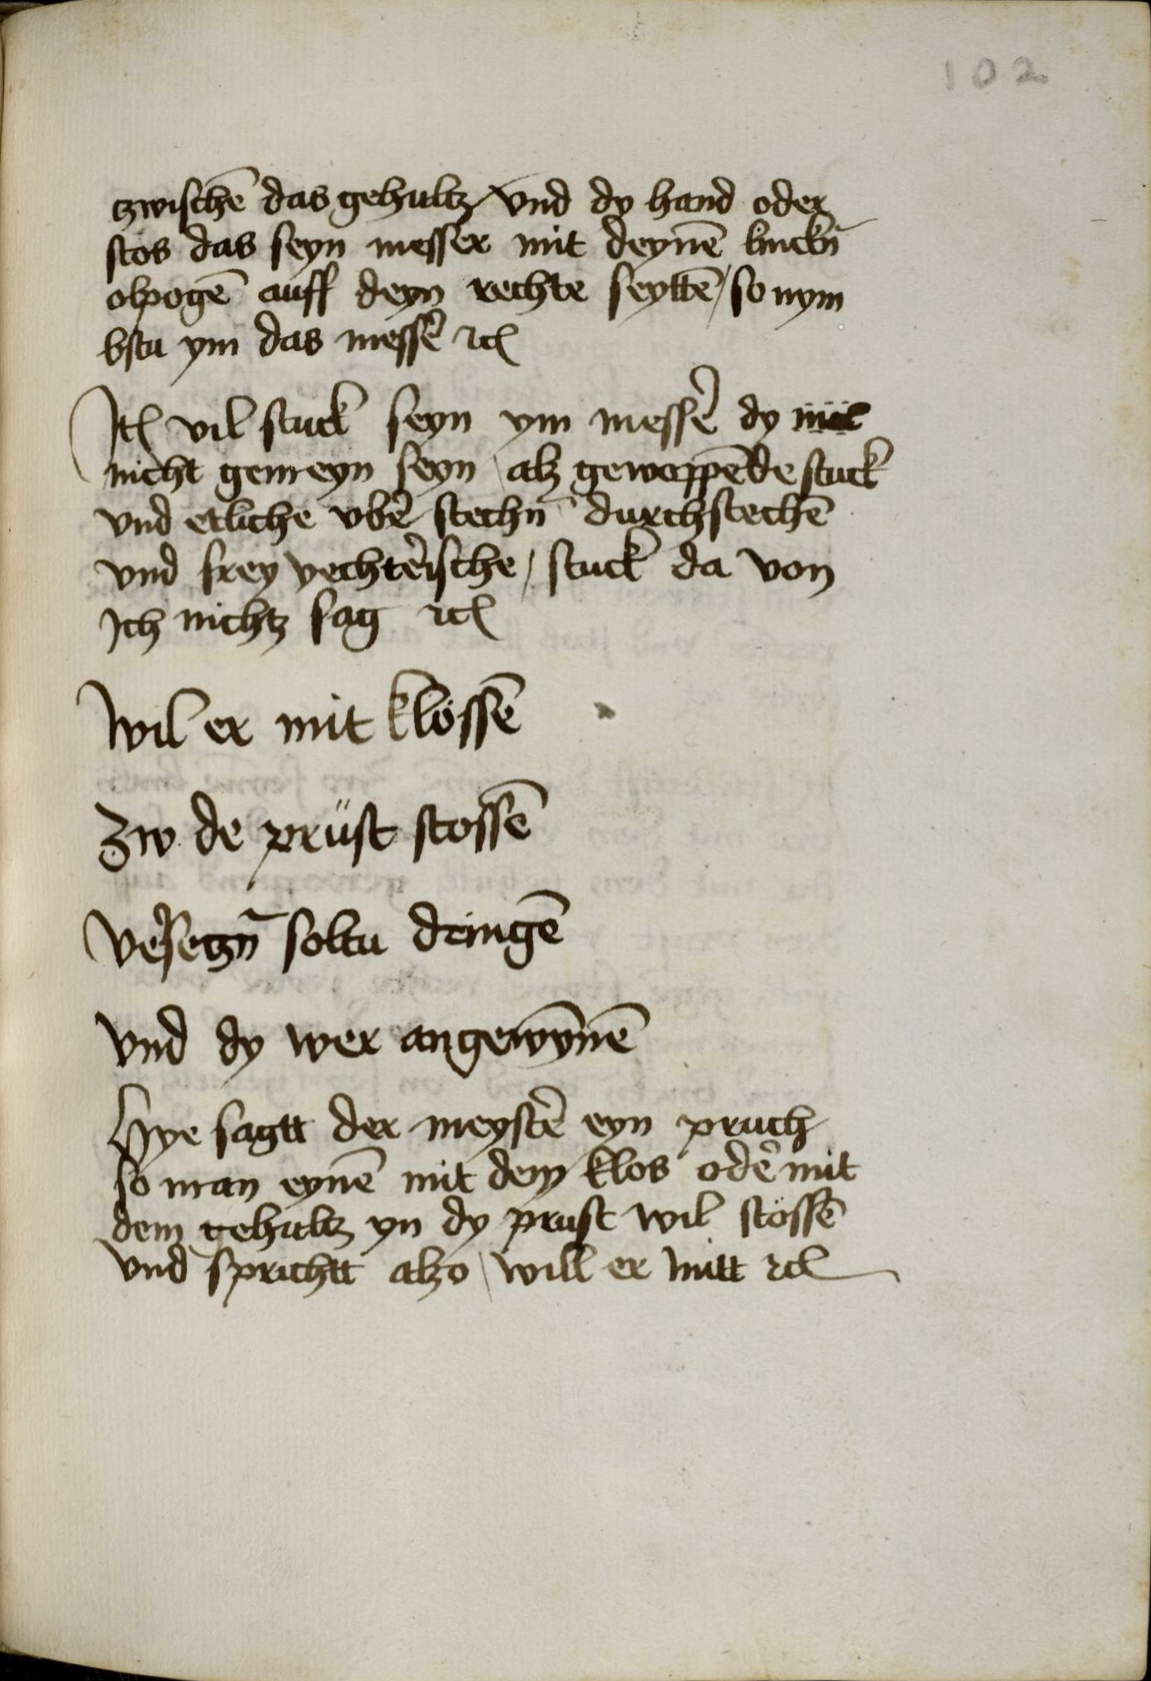 102
tzwischē das gehultz vnd dy hand oder
stos das seyn messer mit deynē linckñ
olpogē auff deyn rechte seyttē / so nym
bstu ym das messē rc
Itē vil stuck seyn ym messē dy
nicht gemeyn seyn alz gewoppēde stuck
vnd etliche vbē stechn̄ durchstechē
vnd frey vechtēische / stuck da von
Ich nichtz sag rc
Wil er mit klössē
Zw de prüst stossē
Vēsetzn̄ soltu dringē
Vnd dy wer angewȳnē
Hye sagtt der meystē eyn pruch
so man eynē mit dem klos odē mit
dem gehultz yn dy prust wil stössē
vnd sprichtt alzo / will er mitt rc